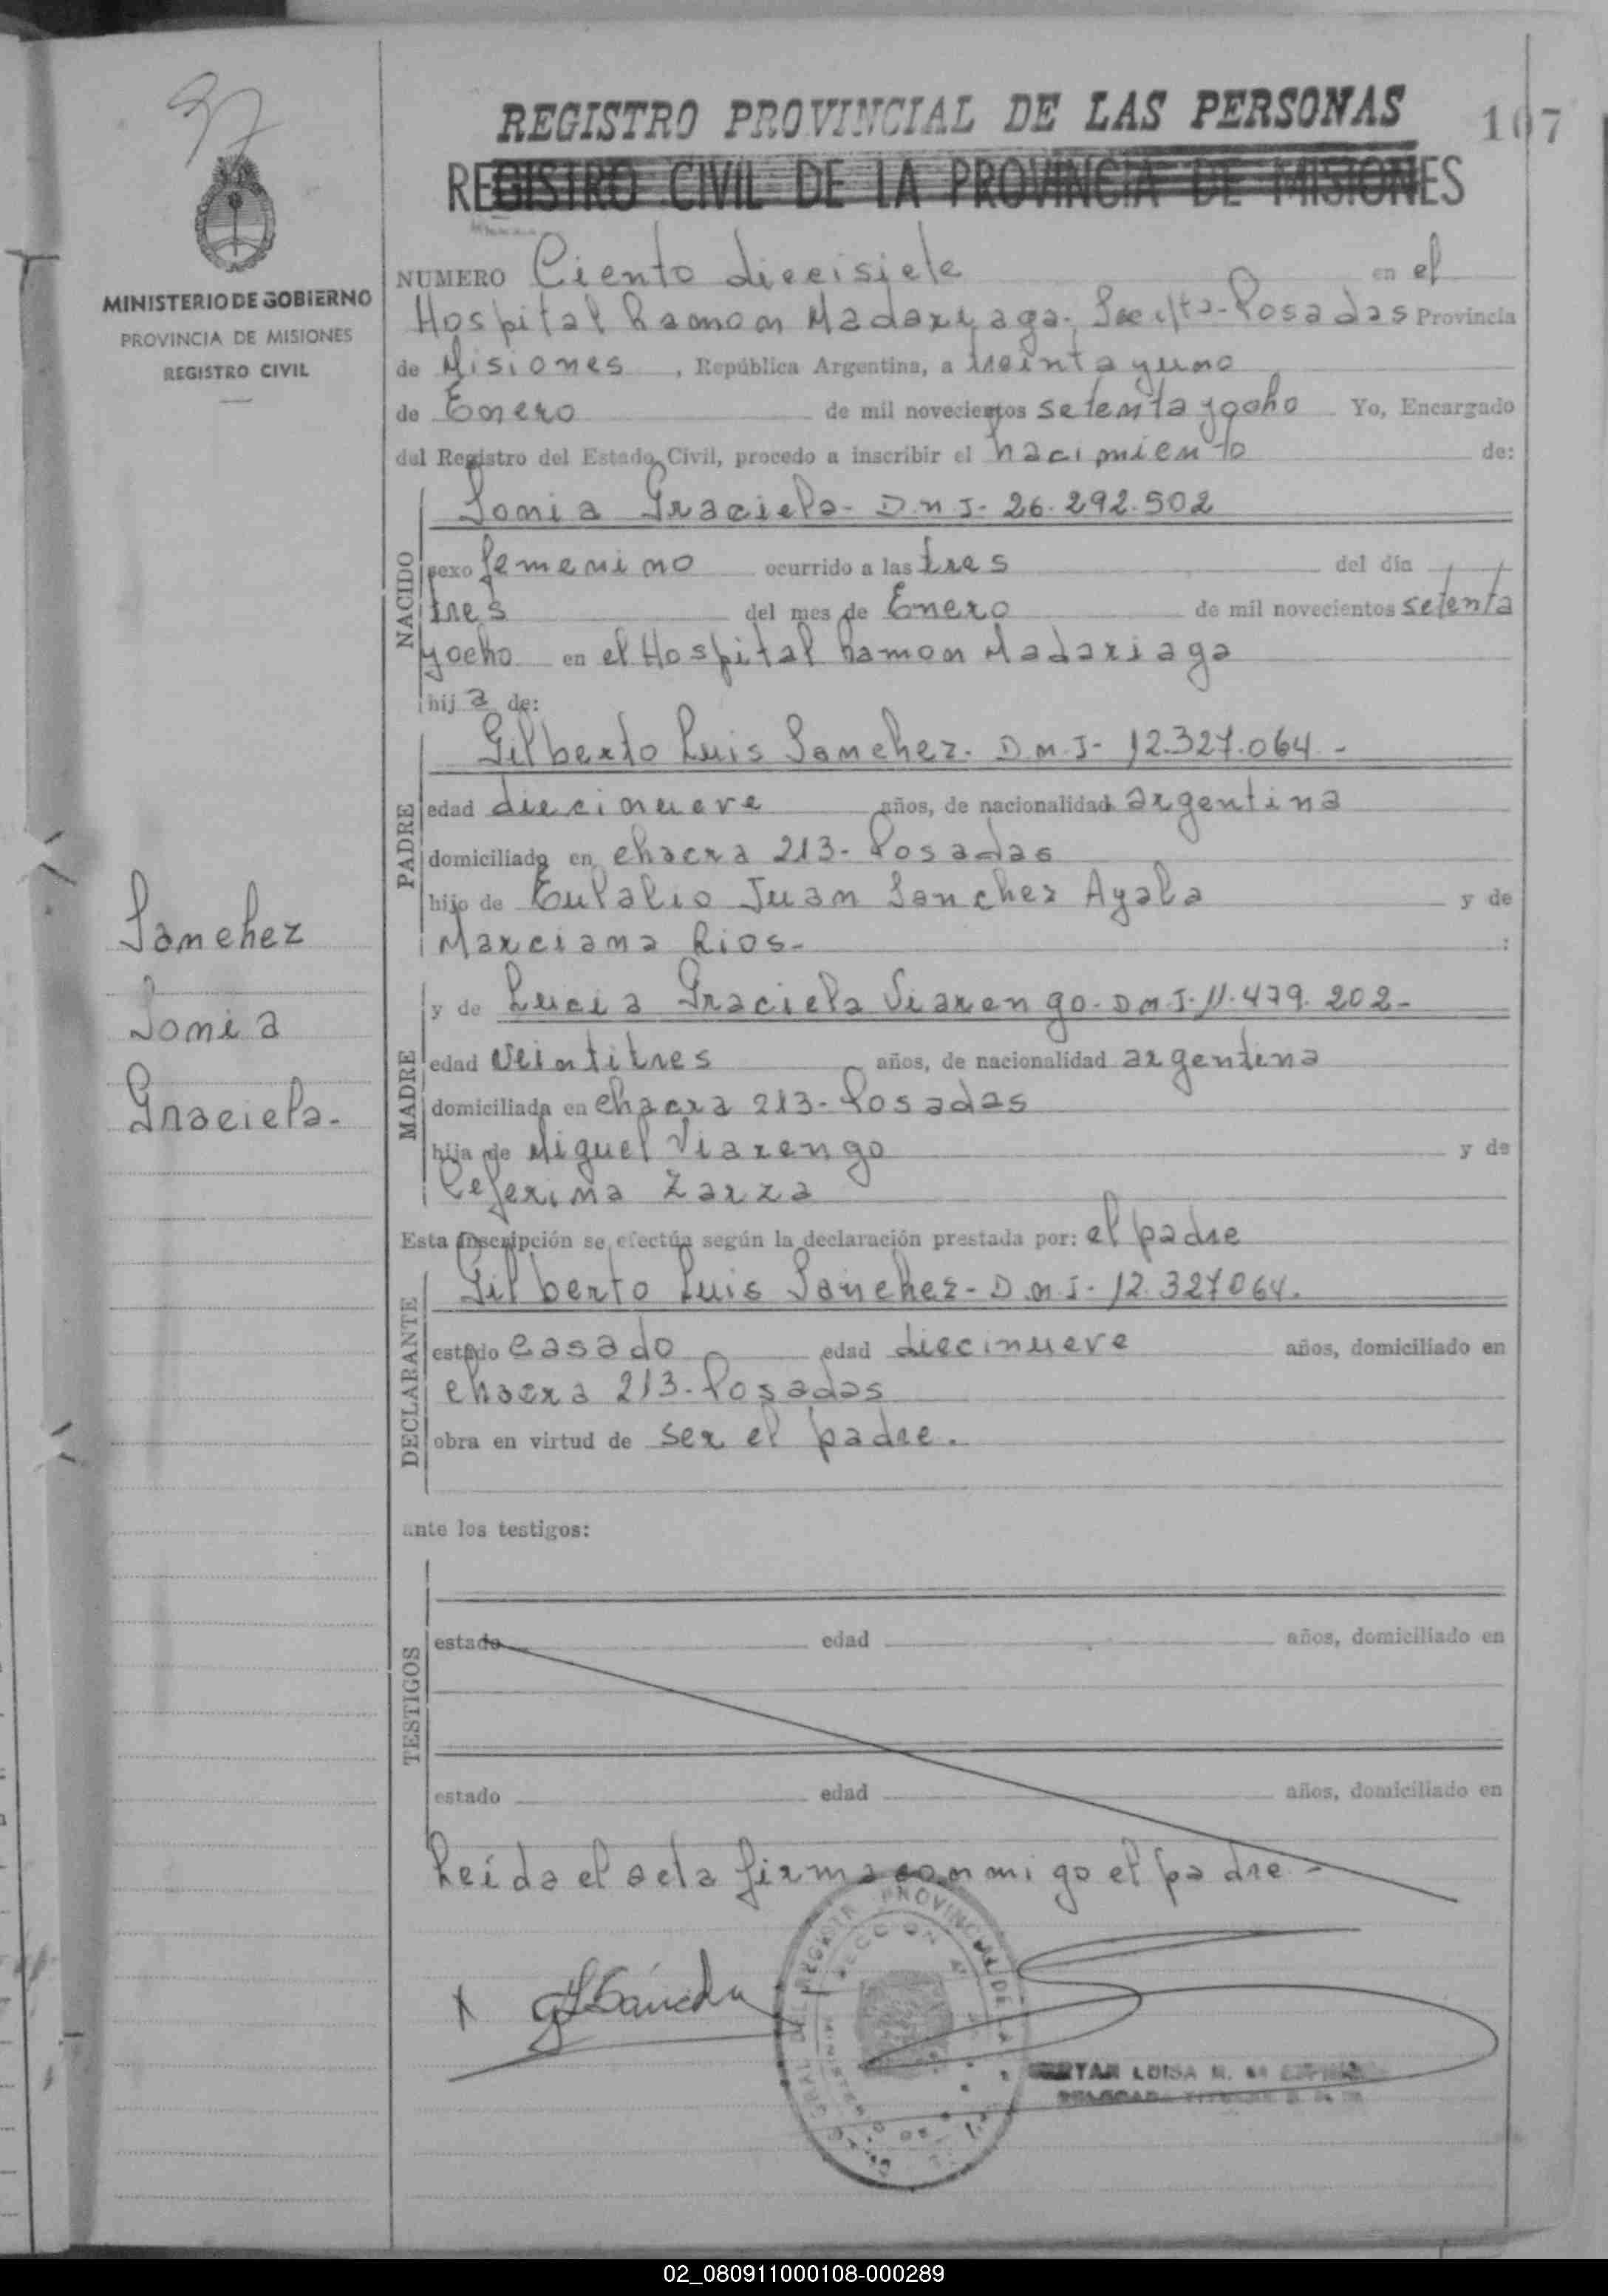 37
MINISTERIO DE GOBIERNO
PROVINCIA DE MISIONES
REGISTRO CIVIL
Sanchez
Sonia
Graciela.
REGISTRO PROVINCIAL DE LAS PERSONAS
107
REGISTRO CIVIL DE LA PROVINCIA DE MISIONES
NUMERO Ciento diecisiete en el
Hospital Ramon Madariaga. Posadas Provincia
de Misiones, República Argentina, a treinta y uno
de Enero de mil novecientos setenta y ocho Yo, Encargado
del Registro del Estado Civil, procedo a inscribir el nacimiento de:
NACIDO
Sonia Graciela - D.N.I - 26.292.502
sexo femenino ocurrido a las tres del día
tres del mes de Enero de mil novecientos setenta
y ocho en el Hospital Ramon Madariaga
hij a de:
PADRE
Gilberto Luis Sanchez. D.N.I - 12.327.064 -
edad diecinueve años, de nacionalidad argentina
domiciliado en chacra 213 - Posadas
hijo de Eulalio Juan Sanchez Ayala y de
Marciana Rios - :
MADRE
y de Lucia Graciela Viarengo - D.N.I - 11.479.202 -
edad veintitres años, de nacionalidad argentina
domiciliada en chacra 213 - Posadas
hija de Miguel Viarengo y de
Ceferina Zarza
Esta inscripción se efectúa según la declaración prestada por: el padre
DECLARANTE
Gilberto Luis Sanchez - D.N.I - 12.327064.
estado casado edad diecinueve años, domiciliado en
chacra 213 - Posadas
obra en virtud de ser el padre.
ante los testigos:
TESTIGOS
estado edad años, domiciliado en
estado edad años, domiciliado en
Leída el acta firma conmigo el padre -
X GLSánchez
LUISA
02_080911000108-000289